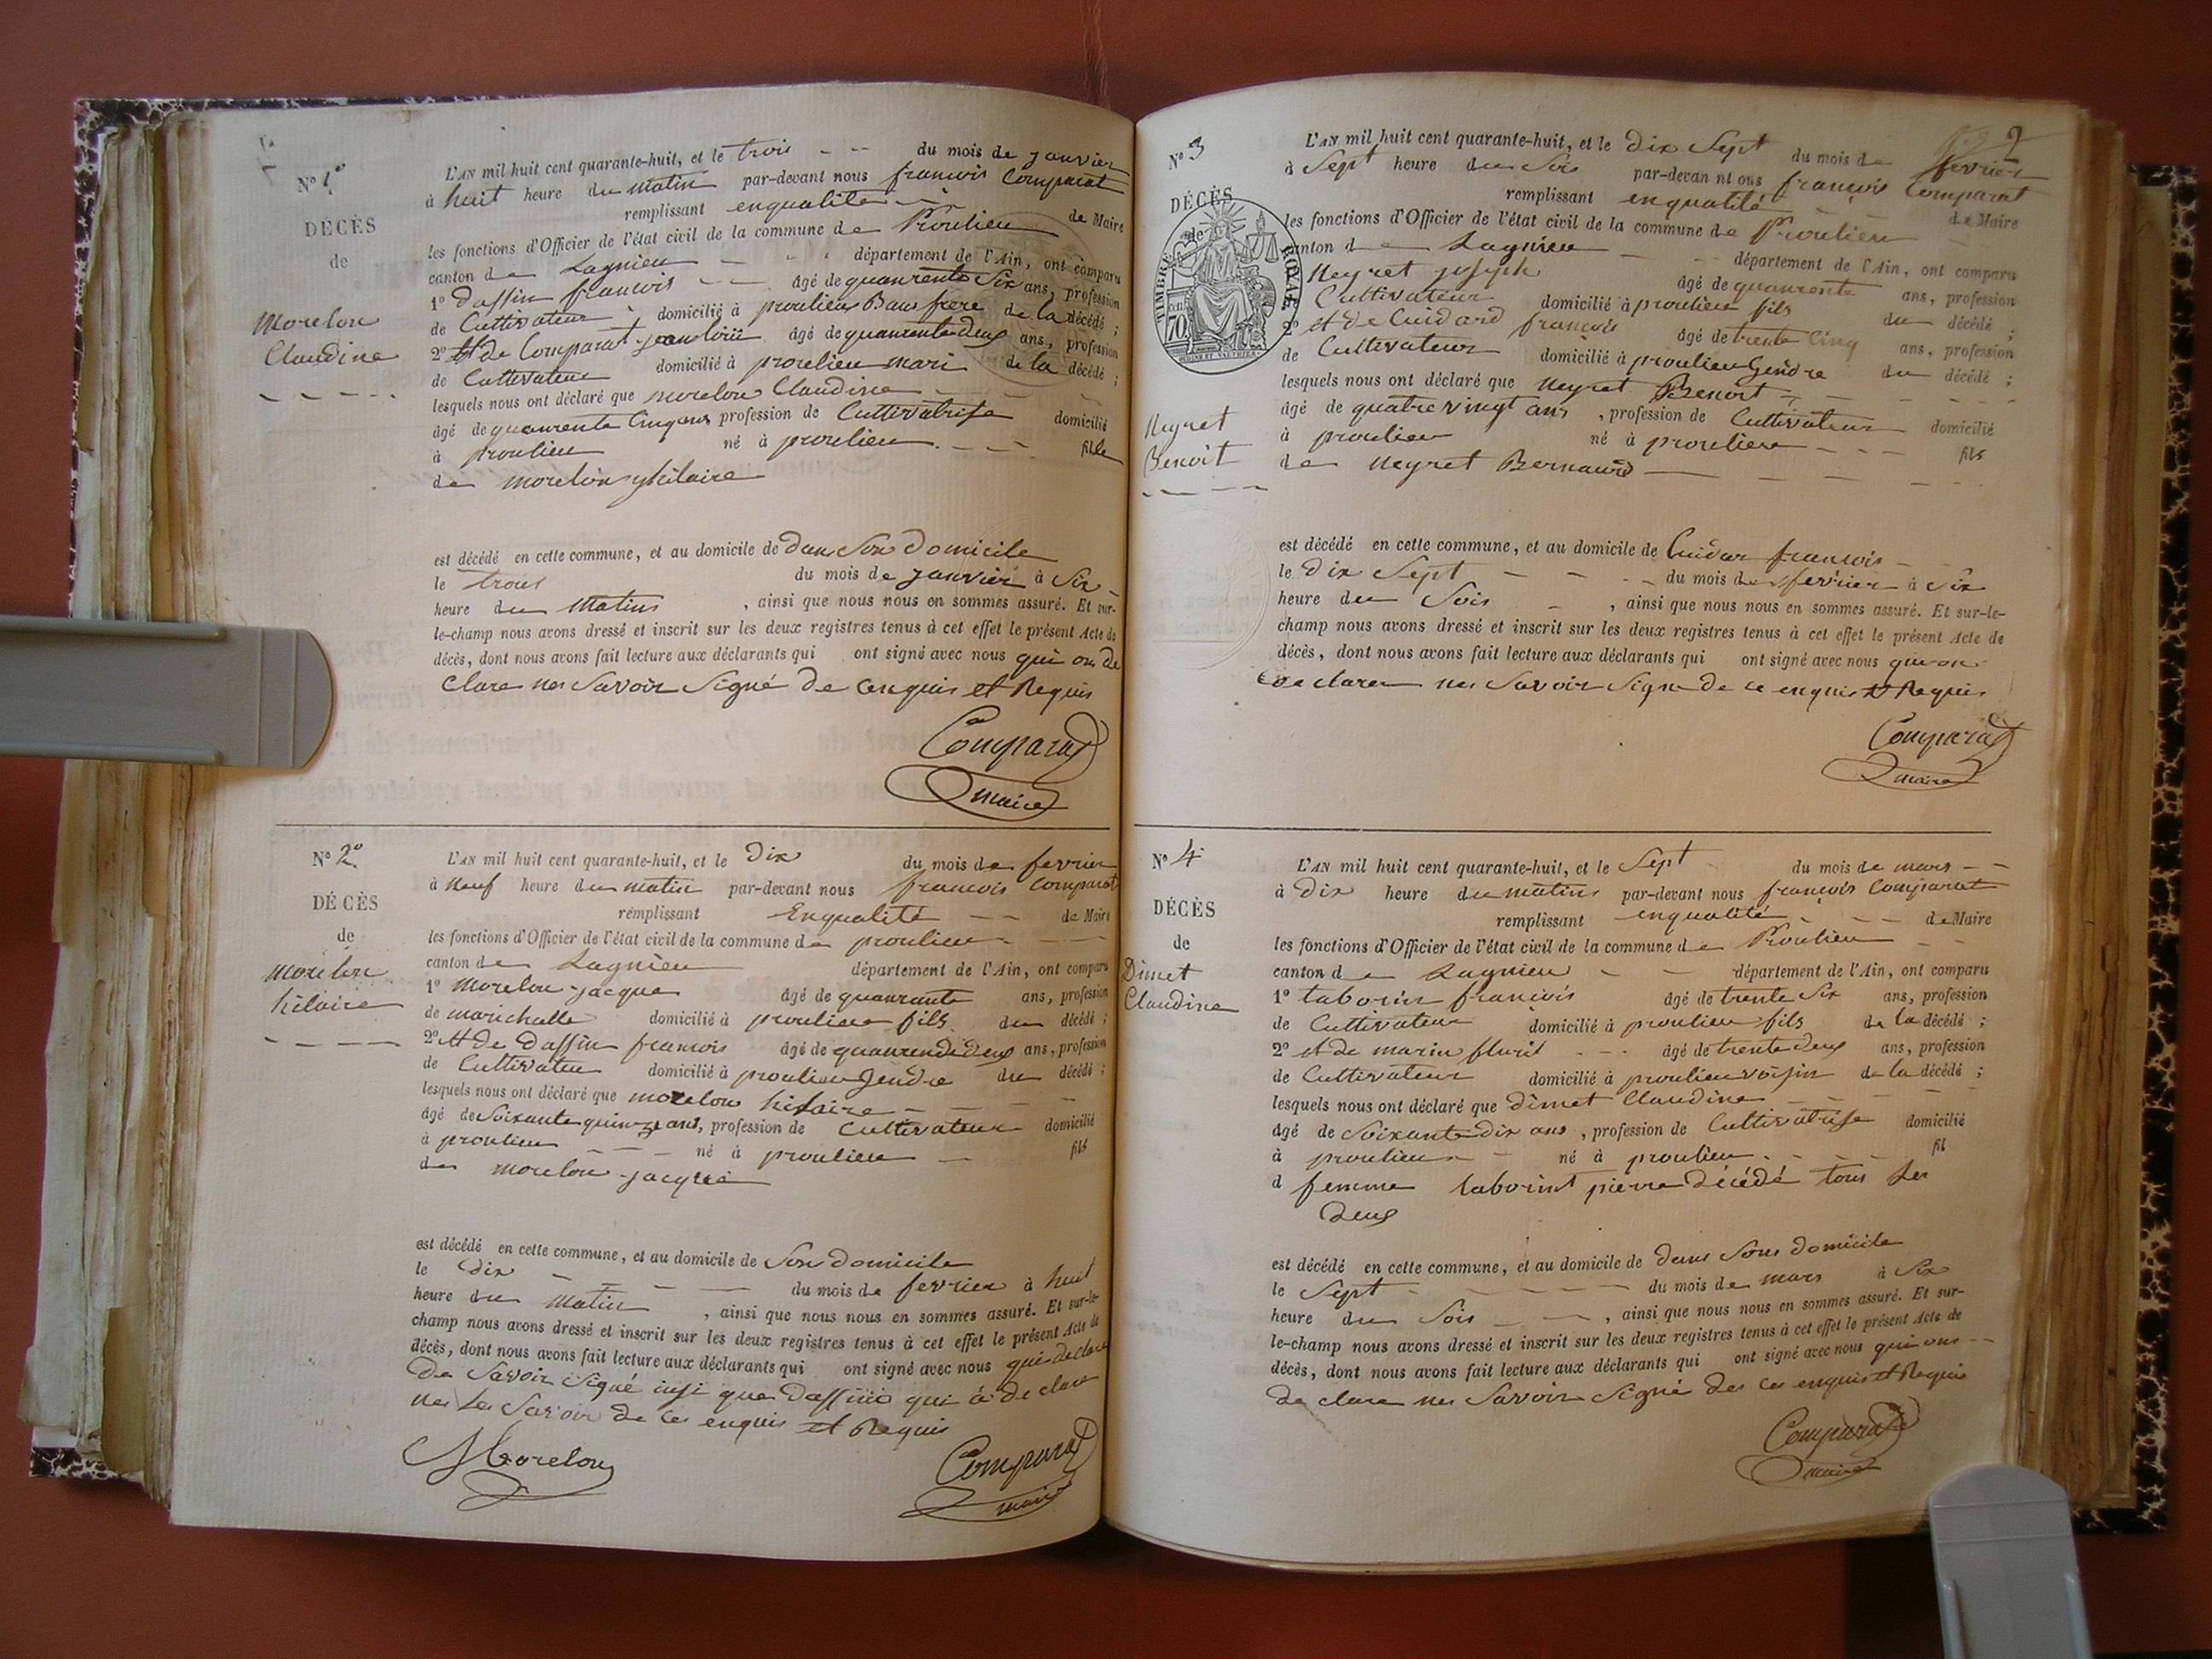 N° 1°
DÉCÈS
de
Morelon
Claudine
L'AN mil huit cent quarante-huit, et le trois du mois de janvier
à huit heure du matin par-devant nous francois Comparat
remplissant enqualité de Maire
les fonctions d'Officier de l'état civil de la commune de Proulieu
canton de Lagnieu département de l'Ain, ont comparu
1° Daffin francois âgé de quanrente Six ans, profession
de Cultivateur domicilié à proulieu Bau frere de la décédé ;
2° et de Comparat jean louis âgé de quanrente deux ans, profession
de Cultivateur domicilié à proulieu mari de la décédé ;
lesquels nous ont déclaré que morelon Claudine
âgé de quanrente Cinq ans profession de Cultivatrise domicilié
à proulieu né à proulieu fille
de morelon hilaire
est décédé en cette commune, et au domicile de dans Son Domicile
le trois du mois de janvier à Six
heure du Matin , ainsi que nous nous en sommes assuré. Et sur-
le-champ nous avons dressé et inscrit sur les deux registres tenus à cet effet le présent Acte de
décès, dont nous avons fait lecture aux déclarants qui ont signé avec nous qui on de
Clare nes Savoir Signé de enquis et Requis
Comparat
maire
N° 2°
DÉCÈS
de
Morelon
hilaire
L'AN mil huit cent quarante-huit, et le Dix du mois de fevrier
à Neuf heure du matin par-devant nous francois Comparat
remplissant Enqualité de Maire
les fonctions d'Officier de l'état civil de la commune de proulieu
canton de Lagnieu département de l'Ain, ont comparu
1° Morelon jacque âgé de quanrante ans, profession
de marichalle domicilié à proulieu fils du décédé ;
2° et de Daffin francois âgé de quanrende deux ans, profession
de Cultivateur domicilié à proulieu Jendre du décédé ;
lesquels nous ont déclaré que morelon hilaire
âgé de Soixante quinze ans, profession de Cultivateur domicilié
à proulieu né à proulieu fils
de morelon jacque
est décédé en cette commune, et au domicile de Son domicile
le dix du mois de fevrier à huit
heure du Matin , ainsi que nous nous en sommes assuré. Et sur-le-
champ nous avons dressé et inscrit sur les deux registres tenus à cet effet le présent Acte de
décès, dont nous avons fait lecture aux déclarants qui ont signé avec nous qui declare
De Savoir Signé que Daffin qui a de clare
nes Les Savoir de ces enquis et Requis
Morelon
Comparat
maire
2
N° 3
DÉCÈS
de
TIMBRE ROYAL
70
Neyret
Benoit
L'AN mil huit cent quarante-huit, et le Dix Sept du mois de fevrier
à Sept heure du Soir par-devan nt ous francois Comparat
remplissant enqualité de Maire
les fonctions d'Officier de l'état civil de la commune de Proulieu
canton de Lagnieu département de l'Ain, ont comparu
Neyret joseph âgé de quanrente ans, profession
Cultivateur domicilié à proulieu fils du décédé ;
2° et de Cuidard francois âgé de trente Cinq ans, profession
de Cultivateur domicilié à proulieu Gendre du décédé ;
lesquels nous ont déclaré que Neyret Benoit
âgé de quatre vingt ans , profession de Cultivateur domicilié
à proulieu né à proulieu fils
de Neyret Bernard
est décédé en cette commune, et au domicile de Cuidar francois
le Dix Sept du mois de fevrier à Six
heure du Soir , ainsi que nous nous en sommes assuré. Et sur-le-
champ nous avons dressé et inscrit sur les deux registres tenus à cet effet le présent Acte de
décès, dont nous avons fait lecture aux déclarants qui ont signé avec nous qui on
De clare nes Savoir Signe de ce enquis et Requis
Comparat
maire
N° 4
DÉCÈS
de
Dimet
Claudine
L'AN mil huit cent quarante-huit, et le Sept du mois de mars
à Dix heure du matins par-devant nous francois Comparat
remplissant enqualité de Maire
les fonctions d'Officier de l'état civil de la commune de Proulieu
canton de Lagnieu département de l'Ain, ont comparu
1° taborin francois âgé de trente Six ans, profession
de Cultivateur domicilié à proulieu fils de la décédé ;
2° et de marin fluri âgé de trente deux ans, profession
de Cultivateur domicilié à proulieu voisin de la décédé ;
lesquels nous ont déclaré que dimet Claudine
âgé de Soixante dix ans , profession de Cultivatrise domicilié
à proulieu né à proulieu fil
d femme taborint pierre Décédé tous Les
Deux
est décédé en cette commune, et au domicile de dans Sons domicile
le Sept du mois de mars à Six
heure du Soir , ainsi que nous nous en sommes assuré. Et sur-
le-champ nous avons dressé et inscrit sur les deux registres tenus à cet effet le présent Acte de
décès, dont nous avons fait lecture aux déclarants qui ont signé avec nous qui ons
de clare nes Savoir Signé des ces enquis et Requis
Comparat
maire